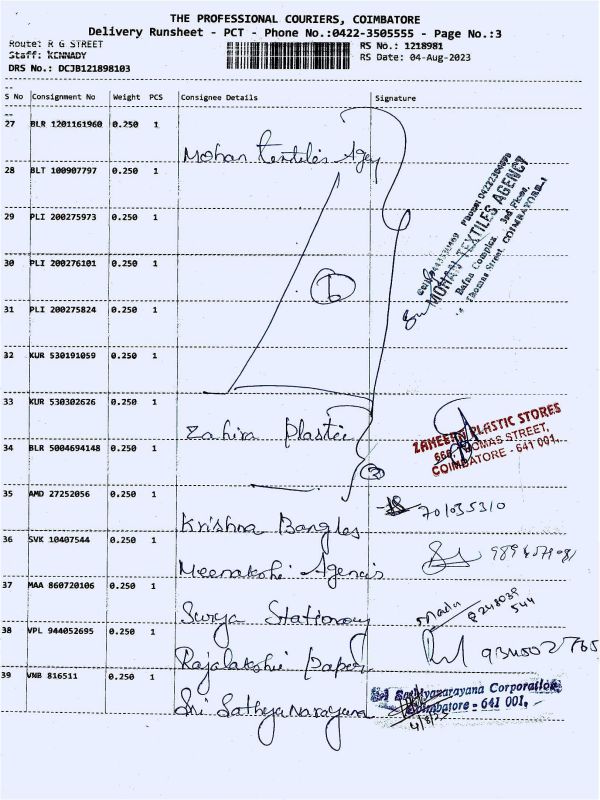 THE PROFESSIONAL COURIERS, COIMBATORE
Delivery Runsheet - PCT - Phone No.:0422-3505555 - Page No.:3
Route: R G STREET
RS No.: 1218981
Staff: KENNADY
RS Date: 04-Aug-2023
DRS No.: DCJB121898103
S No Consignment No Weight PCS Consignee Details Signature
27 BLR 1201161960 0.250 1
Mohan Textiles Agey
28 BLT 100907797 0.250 1
29 PLI 200275973 0.250 1
30 PLI 200276101 0.250 1
31 PLI 200275824 0.250 1
6
MOHAN TEXTILES AGENCY
Bafna Complex, 3rd Floor,
Thomas Street, COIMBATORE-1
32 KUR 530191059 0.250 1
33 KUR 530302626 0.250 1
Zahira Plastic
2
ZAHEERA PLASTIC STORES
THOMAS STREET,
COIMBATORE - 641 001.
34 BLR 5004694148 0.250 1
35 AMD 27252056 0.250 1
Krishna Bangles
70135310
36 SVK 10407544 0.250 1
Meenakshi Agencis
37 MAA 860720106 0.250 1
Surya Stationary
38 VPL 944052695 0.250 1
Rajalakshi Paper
39 VNB 816511 0.250 1
Sri Sathyanarayana
Sathyanarayana Corporation
Coimbatore - 641 001.
4/8/23